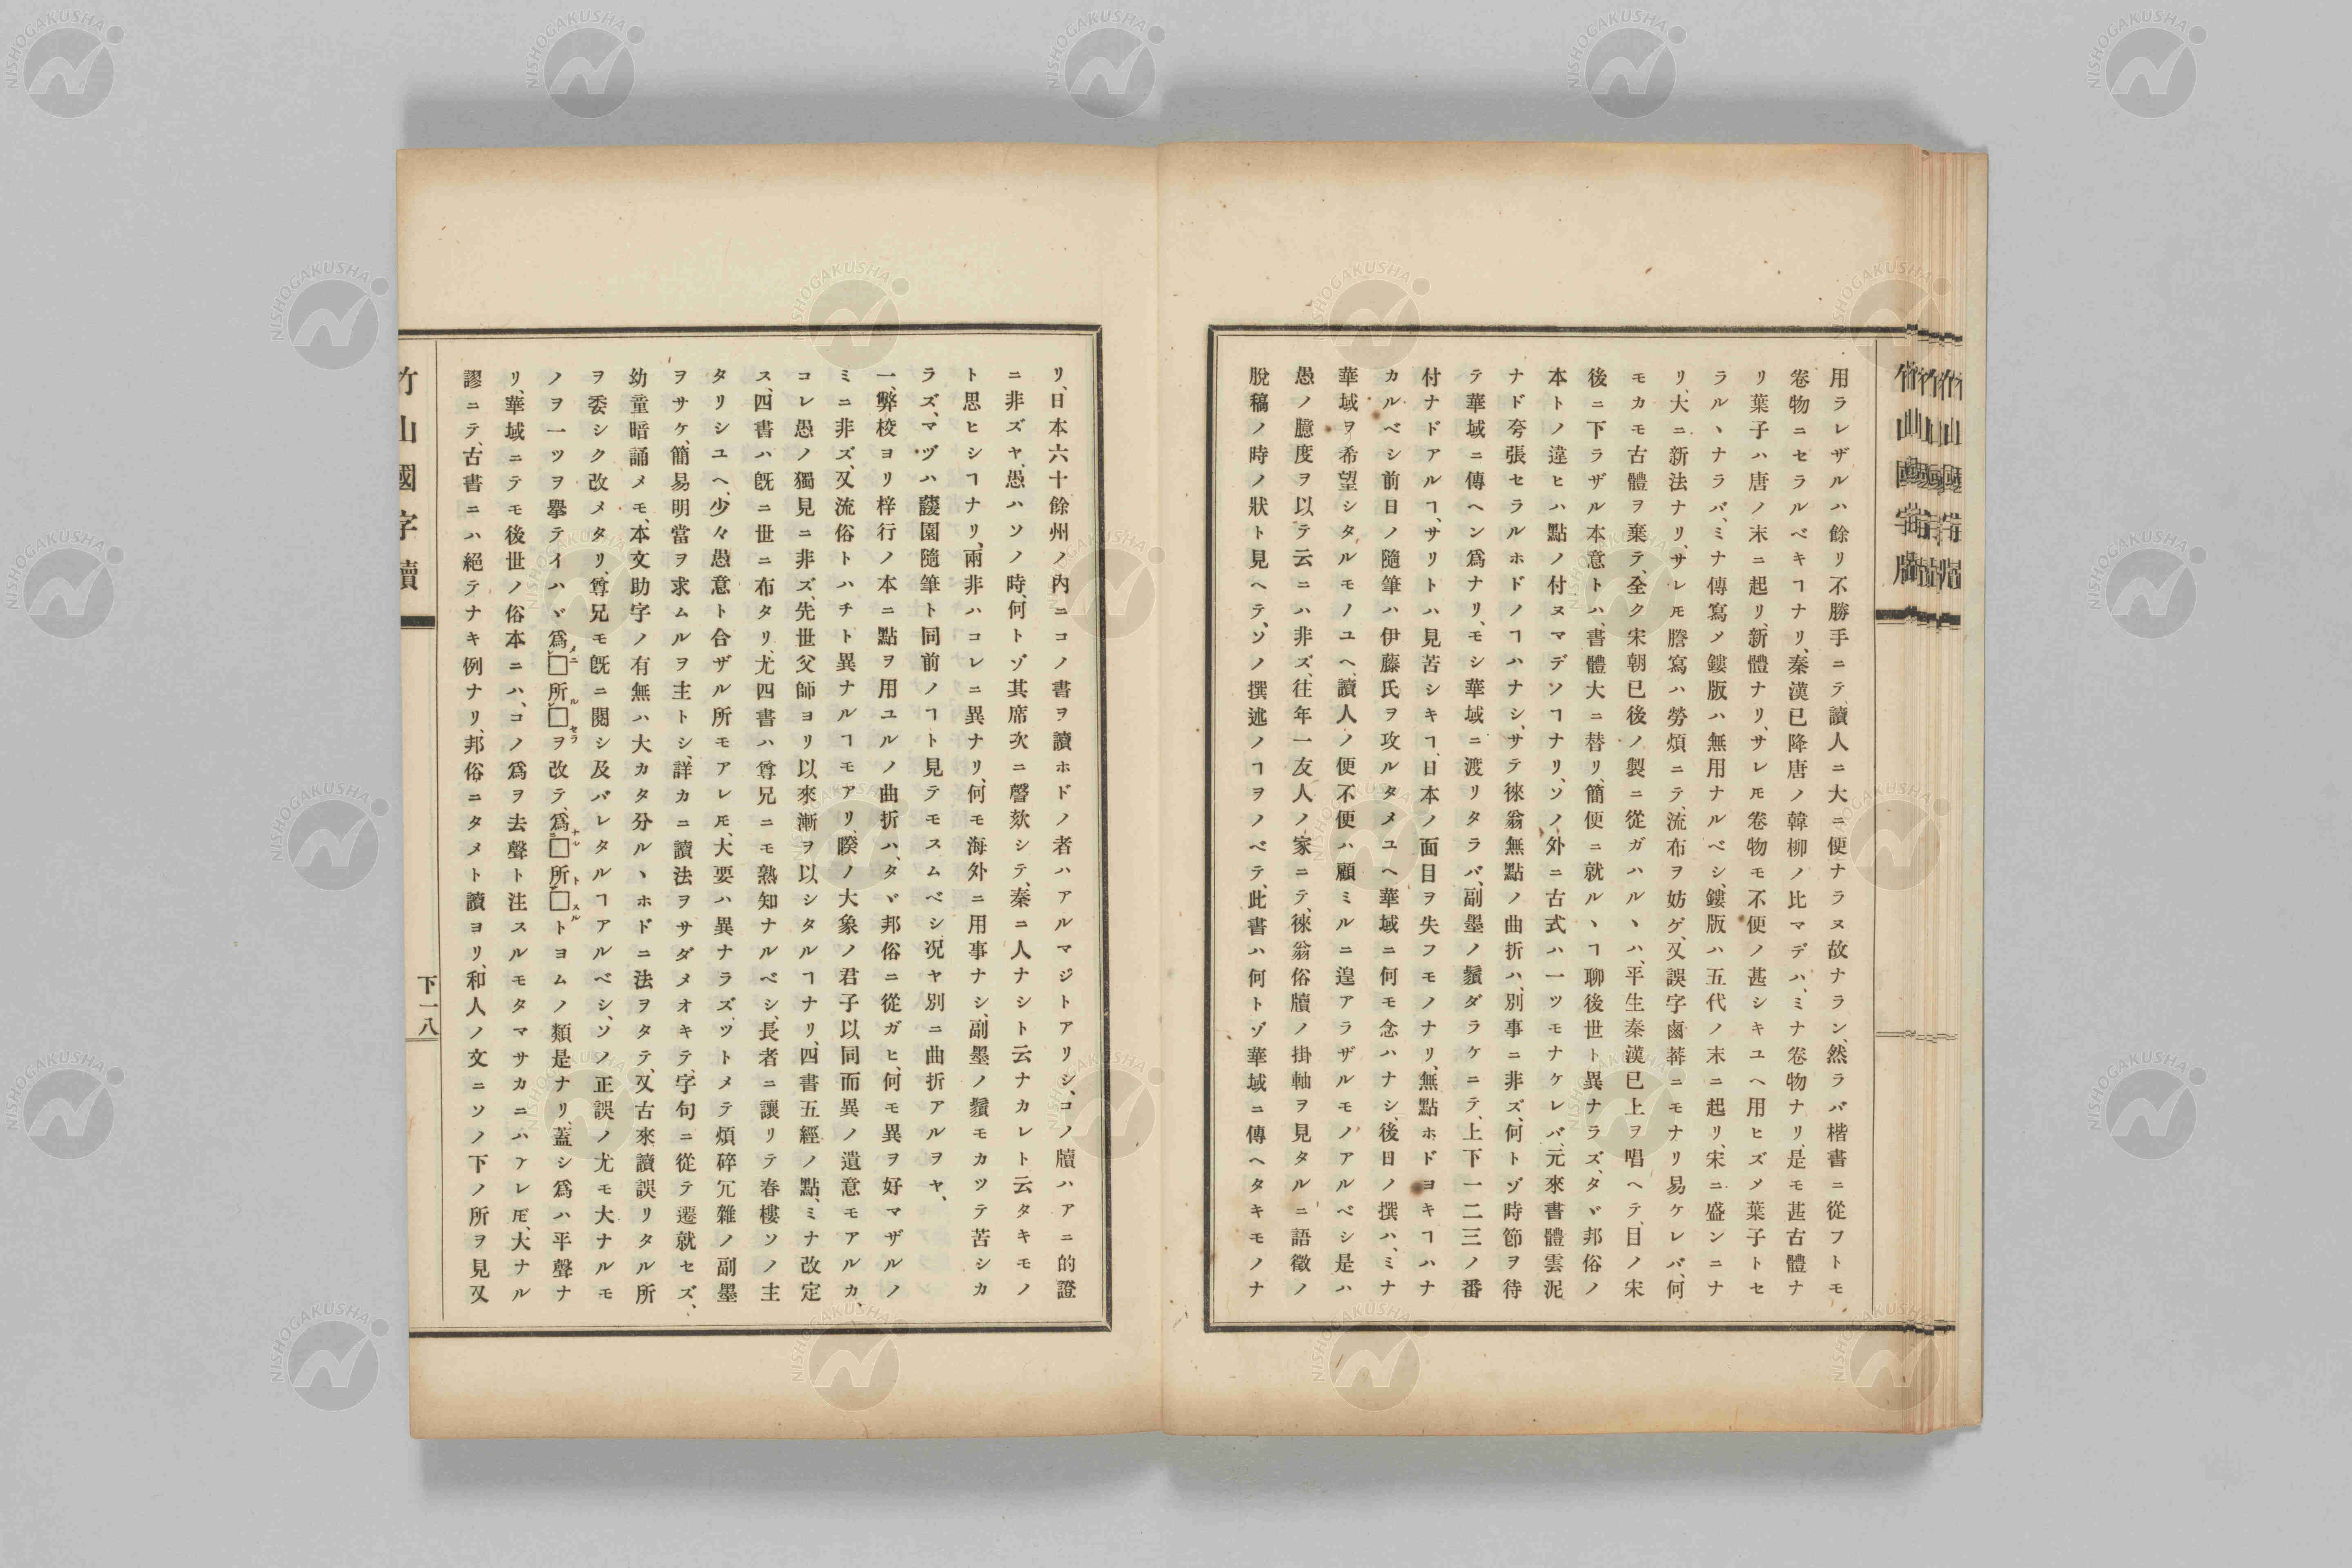 竹山國字牘
用ラレザルハ餘リ不勝手ニテ、讀人ニ大ニ便ナラヌ故ナラン、然ラバ楷書ニ從フトモ
卷物ニセラルベキヿナリ、秦漢已降唐ノ韓柳ノ比マデハ、ミナ卷物ナリ、是モ甚古體ナ
リ葉子ハ唐ノ末ニ起リ、新體ナリ、サレ𪜈卷物モ不便ノ甚シキユヘ用ヒズメ葉子トセ
ラルヽナラバ、ミナ傳寫メ鏤版ハ無用ナルベシ、鏤版ハ五代ノ末ニ起リ、宋ニ盛ンニナ
リ、大ニ新法ナリ、サレ𪜈謄寫ハ勞煩ニテ、流布ヲ妨ゲ、又誤字鹵莽ニモナリ易ケレバ、何
モカモ古體ヲ棄テ、全ク宋朝已後ノ製ニ從ガハルヽハ、平生秦漢已上ヲ唱ヘテ、目ノ宋
後ニ下ラザル本意トハ、書體大ニ替リ、簡便ニ就ルヽヿ聊後世ト異ナラズ、タヾ邦俗ノ
本トノ違ヒハ點ノ付ヌマデソヿナリ、ソノ外ニ古式ハ一ツモナケレバ、元來書體雲泥
ナド夸張セラルホドノヿハナシ、サテ徠翁無點ノ曲折ハ、別事ニ非ズ、何トゾ時節ヲ待
テ華域ニ傳ヘン爲ナリ、モシ華域ニ渡リタラバ、副墨ノ鬚ダラケニテ、上下一二三ノ番
付ナドアルヿ、サリトハ見苦シキヿ、日本ノ面目ヲ失フモノナリ、無點ホドヨキヿハナ
カルベシ前日ノ隨筆ハ伊藤氏ヲ攻ルタメユヘ華域ニ何モ念ハナシ、後日ノ撰ハ、ミナ
華域ヲ希望シタルモノユヘ、讀人ノ便不便ハ顧ミルニ遑アラザルモノアルベシ是ハ
愚ノ臆度ヲ以テ云ニハ非ズ、往年一友人ノ家ニテ、徠翁俗牘ノ掛軸ヲ見タルニ語徵ノ
脫稿ノ時ノ狀ト見ヘテ、ソノ撰述ノヿヲノベテ、此書ハ何トゾ華域ニ傳ヘタキモノナ
リ、日本六十餘州ノ內ニコノ書ヲ讀ホドノ者ハアルマジトアリシ、コノ牘ハアニ的證
ニ非ズヤ、愚ハソノ時、何トゾ其席次ニ謦欬シテ、秦ニ人ナシト云ナカレト云タキモノ
ト思ヒシヿナリ、兩非ハコレニ異ナリ、何モ海外ニ用事ナシ、副墨ノ鬚モカツテ苦シカ
ラズ、マヅハ蘐園隨筆ト同前ノヿト見テモスムベシ、况ヤ別ニ曲折アルヲヤ、
一、弊校ヨリ梓行ノ本ニ點ヲ用ユルノ曲折ハ、タヾ邦俗ニ從ガヒ、何モ異ヲ好マザルノ
ミニ非ズ、又流俗トハチト異ナルヿモアリ、睽ノ大象ノ君子以同而異ノ遺意モアルカ、
コレ愚ノ獨見ニ非ズ、先世父師ヨリ以來漸ヲ以シタルヿナリ、四書五經ノ點、ミナ改定
ス、四書ハ旣ニ世ニ布タリ、尤四書ハ尊兄ニモ熟知ナルベシ、長者ニ讓リテ春樓ソノ主
タリシユヘ、少々愚意ト合ザル所モアレ𪜈、大要ハ異ナラズ、ツトメテ煩碎冗雜ノ副墨
ヲサケ、簡易明當ヲ求ムルヲ主トシ、詳カニ讀法ヲサダメオキテ、字句ニ從テ遷就セズ、
幼童暗誦メモ、本文助字ノ有無ハ大カタ分ルヽホドニ法ヲタテ、又古來讀誤リタル所
ヲ委シク改メタリ、尊兄モ旣ニ閱シ及バレタルヿアルベシ、ソノ正誤ノ尤モ大ナルモ
ノヲ一ツヲ擧テイハヾ爲メニ□所ル□セラヲ改テ、爲ナレ□所ト□スルトヨムノ類是ナリ、蓋シ爲ハ平聲ナ
リ、華域ニテモ後世ノ俗本ニハ、コノ爲ヲ去聲ト注スルモタマサカニハアレ𪜈、大ナル
謬ニテ、古書ニハ絕テナキ例ナリ、邦俗ニタメト讀ヨリ、和人ノ文ニソノ下ノ所ヲ見又
竹山國字牘
下一八